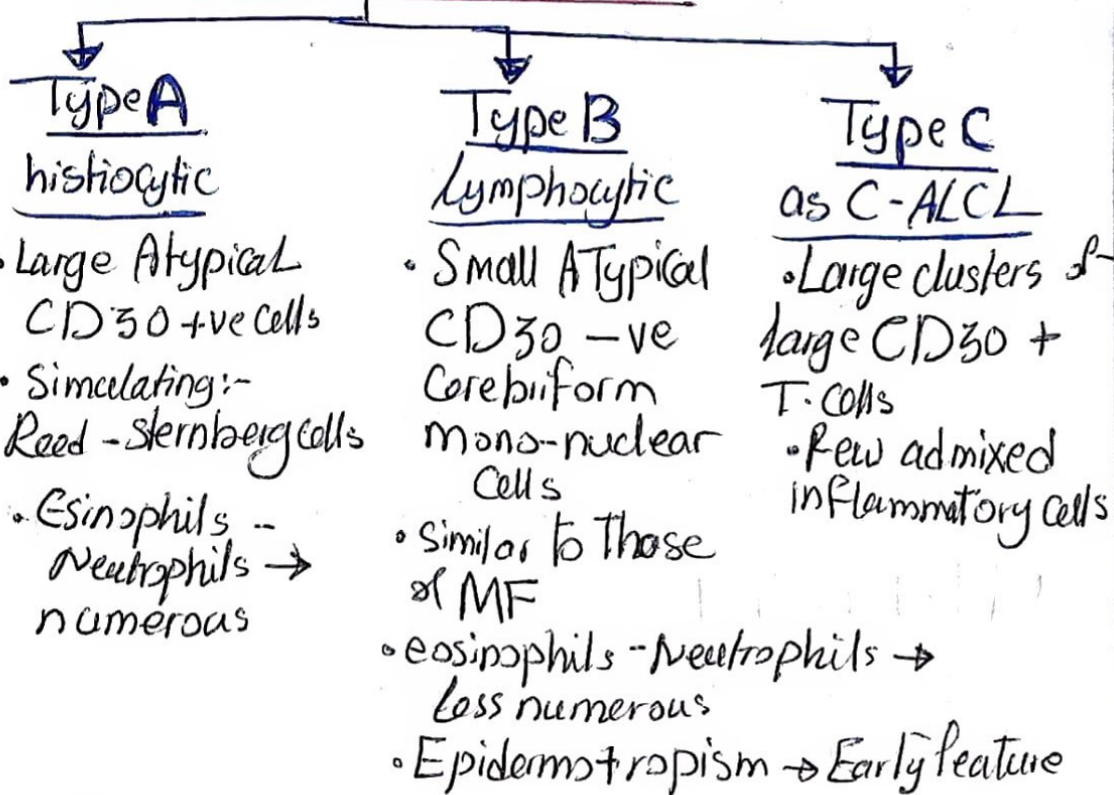 Type A
histiocytic
• Large Atypical
CD30 +ve cells
• Simulating:-
Reed - Sternberg cells
• Esinophils -
Neutrophils →
numerous
Type B
Lymphocytic
• Small ATypical
CD30 -ve
Corebriform
mono-nuclear
Cells
• Similar to Those
of MF
• eosinophils - Neutrophils →
Less numerous
• Epidermotropism → Early feature
Type C
as C-ALCL
• Large clusters of
large CD30 +
T. Cells
• Few admixed
inflammatory cells